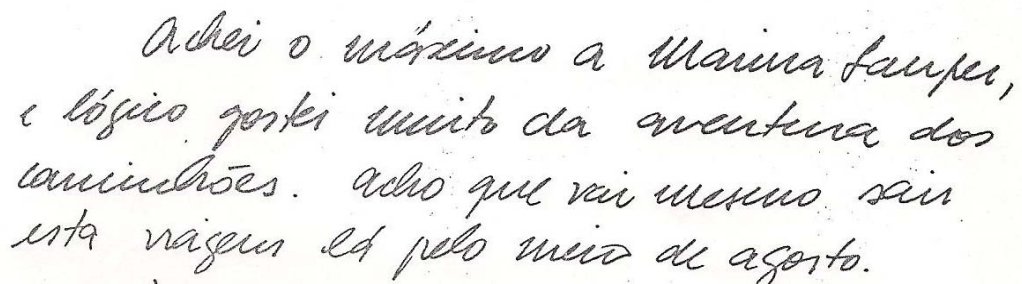 Achei o máximo a Marina Samper,
e lógico gostei muito da aventura dos
caminhões. Acho que vai mesmo sair
esta viagem lá pelo meio de agosto.